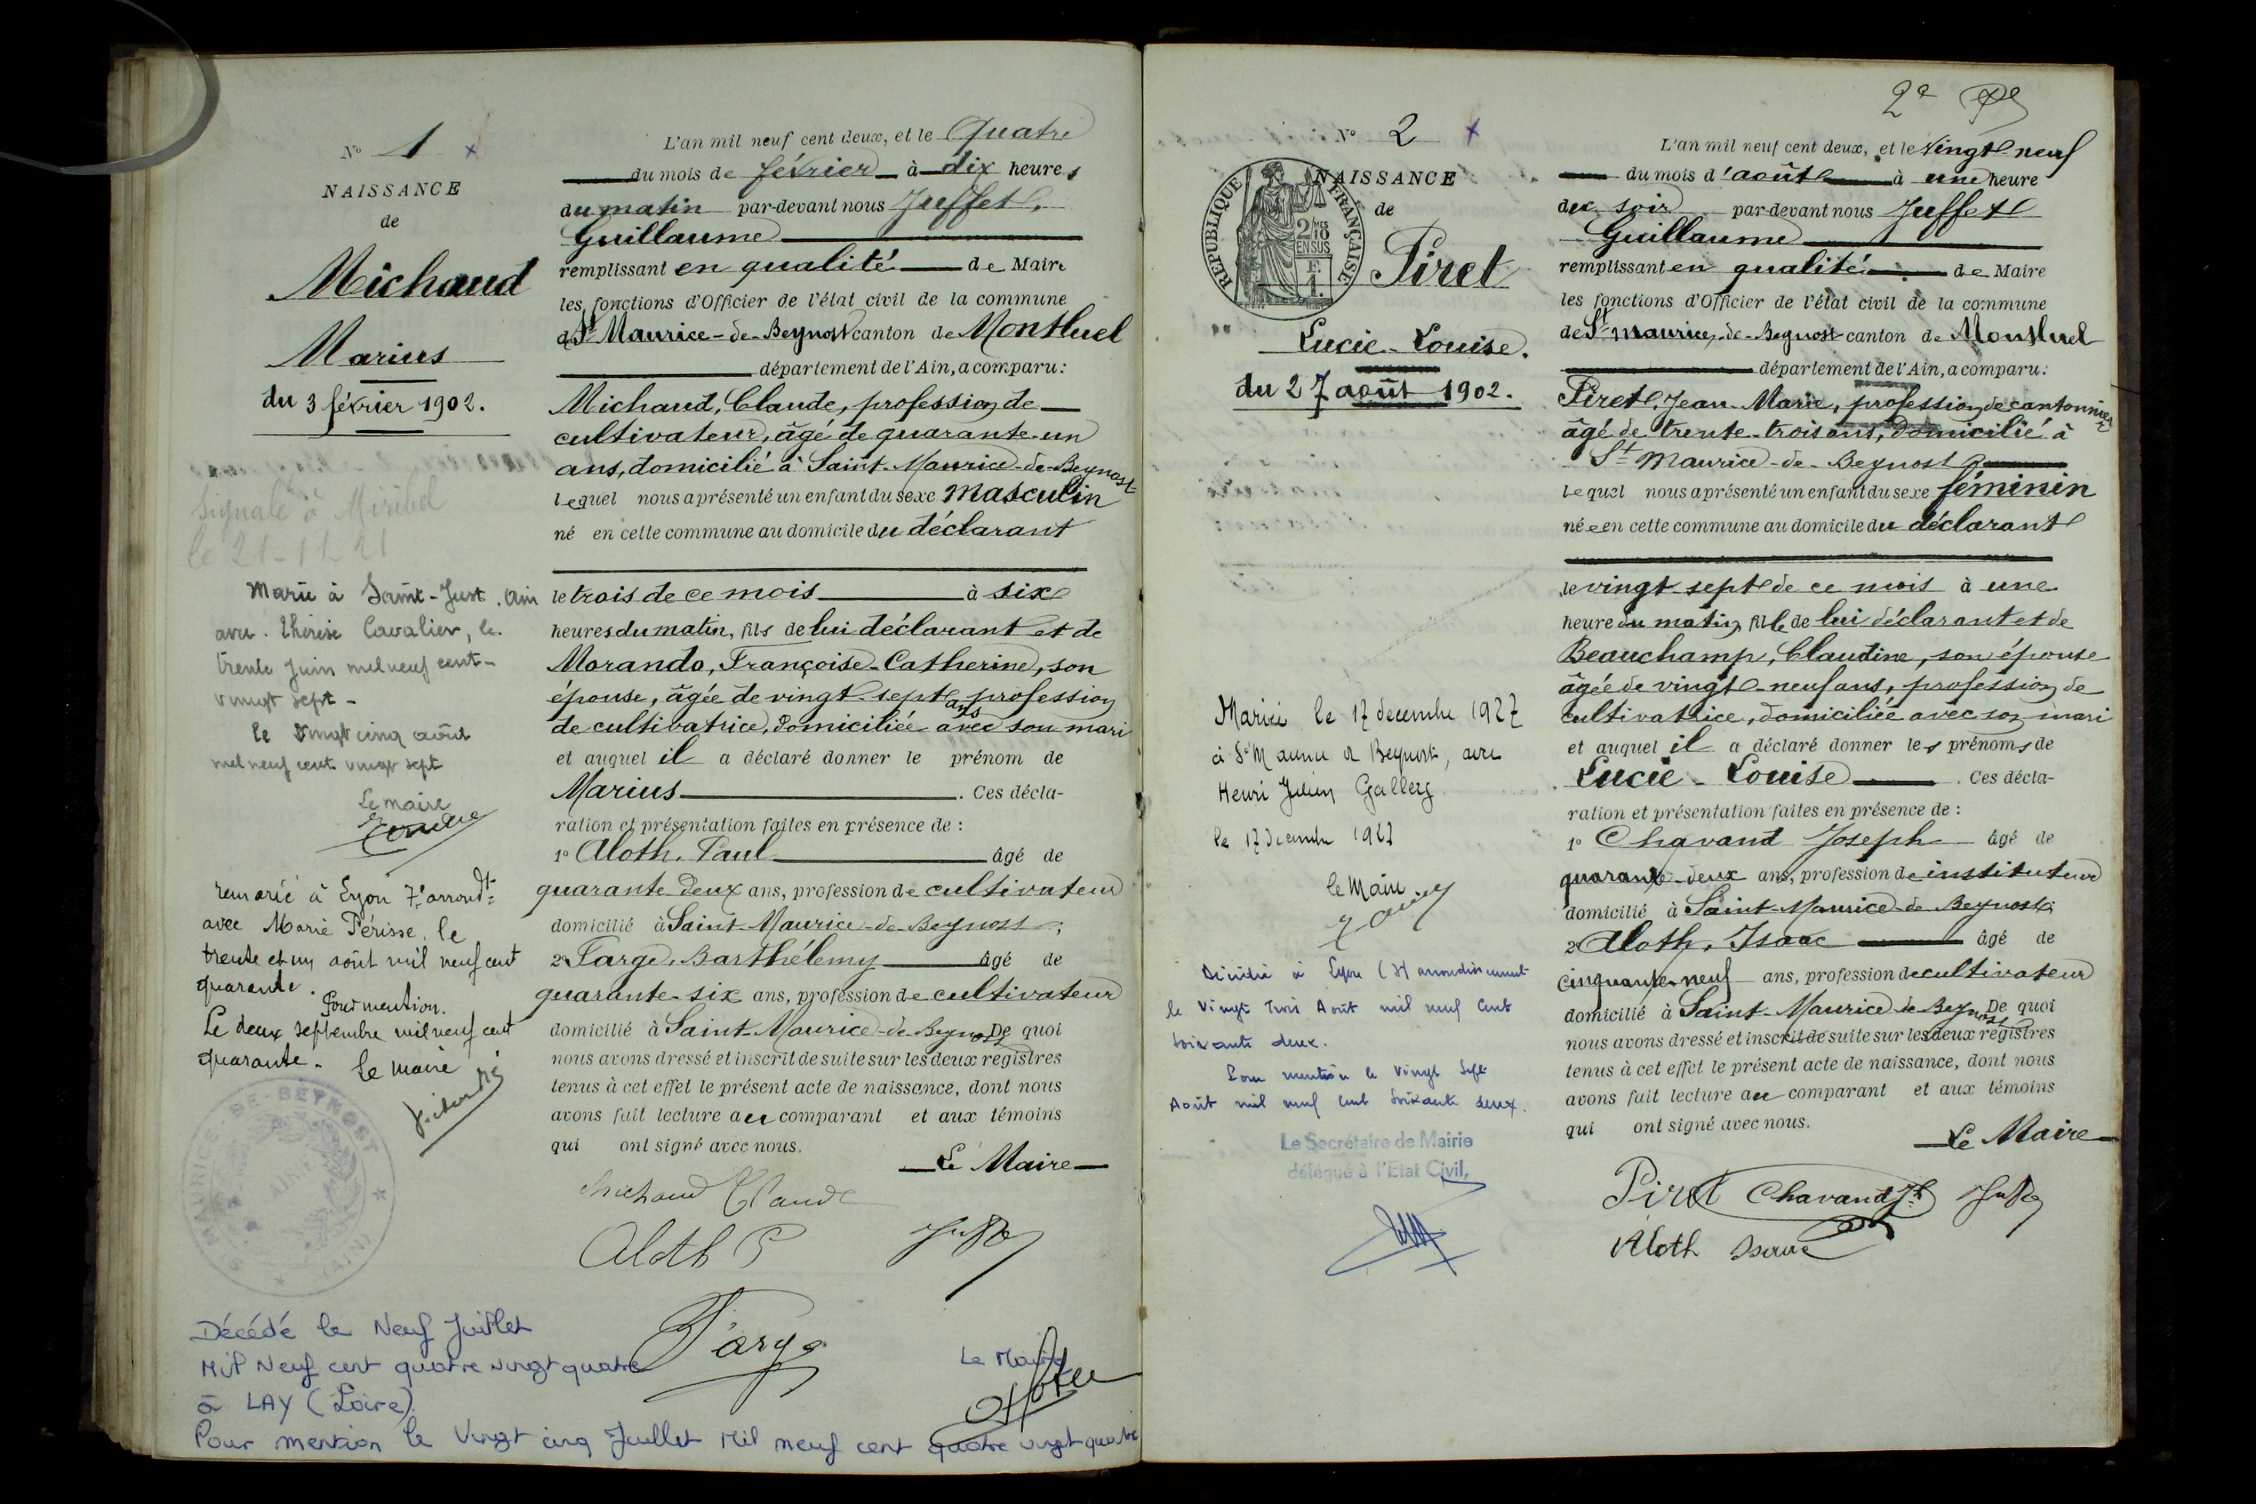 N° 1
NAISSANCE
de
Michaud
Marius
du 3 février 1902.
Signalé à Miribel
le 21-11 21
Marié à Saint-Just. Ain
avec Thérèse Cavalier, le
trente juin mil neuf cent
vingt sept -
le vingt cinq août
mil neuf cent vingt sept
Le maire
remarié à Lyon 7e arrondt
avec Marie Périsse, le
trente et un août mil neuf cent
quarante.
Pour mention.
Le deux septembre mil neuf cent
quarante. le maire
ST MAURICE-DE-BEYNOST
(AIN)
Décédé le Neuf Juillet
Mil Neuf cent quatre vingt quatre
à LAY (Loire).
Pour mention le Vingt cinq Juillet Mil neuf cent quatre vingt quatre
Le Maire
L'an mil neuf cent deux, et le Quatre
du mois de février à dix heures
du matin par-devant nous Juffet,
Guillaume
remplissant en qualité de Maire
les fonctions d'Officier de l'état civil de la commune
de St Maurice-de-Beynost canton de Montluel
département de l'Ain, a comparu:
Michaud, Claude, profession de
cultivateur, âgé de quarante-un
ans, domicilié à Saint-Maurice-de-Beynost
lequel nous a présenté un enfant du sexe Masculin
né en cette commune au domicile du déclarant
le trois de ce mois à six
heures du matin, fils de lui déclarant et de
Morando, Françoise-Catherine, son
épouse, âgée de vingt-sept ans profession
de cultivatrice, domiciliée avec son mari
et auquel il a déclaré donner le prénom de
Marius. Ces décla-
ration et présentation faites en présence de :
1° Aloth, Paul âgé de
quarante deux ans, profession de cultivateur
domicilié à Saint-Maurice-de-Beynost;
2° Farge, Barthélemy âgé de
quarante-six ans, profession de cultivateur
domicilié à Saint-Maurice-de-Beynost De quoi
nous avons dressé et inscrit de suite sur les deux registres
tenus à cet effet le présent acte de naissance, dont nous
avons fait lecture au comparant et aux témoins
qui ont signé avec nous.
Le Maire
Michaud Claude
Aloth P
Farge
2e
N° 2
NAISSANCE
de
REPUBLIQUE FRANÇAISE
2/10 EN SUS
Piret
Lucie-Louise.
du 27 août 1902.
Marié le 17 decembre 1927
à St Maurice de Beynost, avec
Henri Julien
le 17 decembre 1927
le Maire
Décédée à Lyon arrondissement
le Vingt Trois Août mil neuf cent
soixante deux.
Pour mention le Vingt Sept
Août mil neuf cent Soixante deux.
Le Secrétaire de Mairie
délégué à l'Etat Civil,
L'an mil neuf cent deux, et le Vingt neuf
du mois d'août à une heure
du soir par-devant nous Juffet
Guillaume
remplissant en qualité de Maire
les fonctions d'Officier de l'état civil de la commune
de St Maurice-de-Beynost canton de Montluel
département de l'Ain, a comparu:
Piret, Jean-Marie, profession de cantonnier
âgé de trente-trois ans, domicilié à
St Maurice-de-Beynost
lequel nous a présenté un enfant du sexe féminin
née en cette commune au domicile du déclarant
le vingt-sept de ce mois à une
heure du matin, fille de lui déclarant et de
Beauchamp, Claudine, son épouse
âgée de vingt-neuf ans, profession de
cultivatrice, domiciliée avec son mari
et auquel il a déclaré donner les prénoms de
Lucie-Louise. Ces décla-
ration et présentation faites en présence de :
1° Chavand Joseph âgé de
quarante-deux ans, profession de instituteur
domicilié à Saint-Maurice-de Beynost;
2° Aloth, Isaac âgé de
cinquante-neuf ans, profession de cultivateur
domicilié à Saint-Maurice de Beynost De quoi
nous avons dressé et inscrit de suite sur les deux registres
tenus à cet effet le présent acte de naissance, dont nous
avons fait lecture au comparant et aux témoins
qui ont signé avec nous.
Le Maire
Piret Chavand Jh
Aloth Isaac